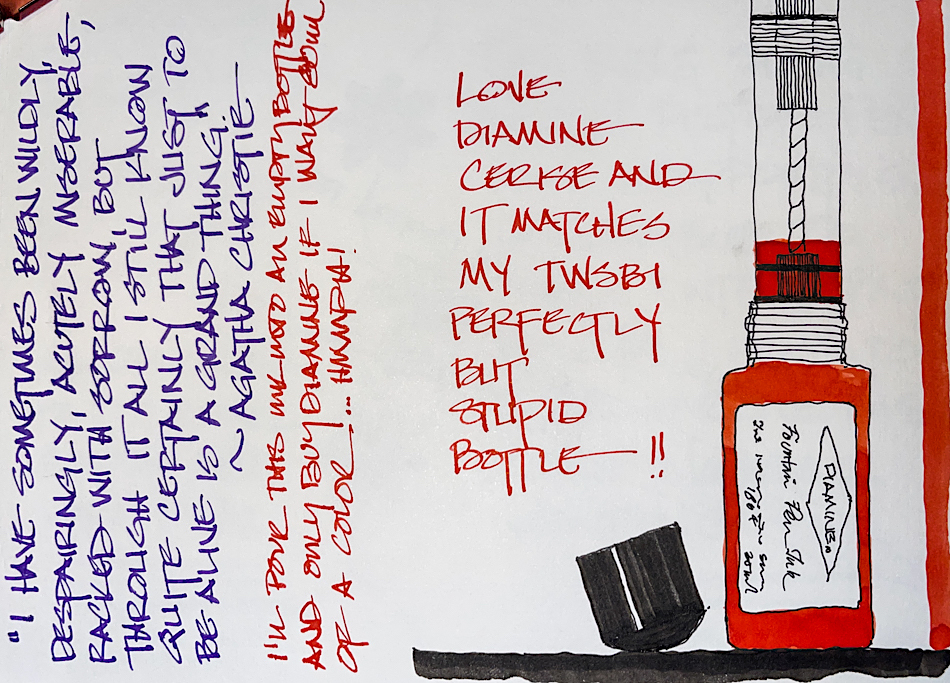 "I HAVE SOMETIMES BEEN WILDLY,
DESPAIRINGLY, ACUTELY MISERABLE,
RACKED WITH SORROW, BUT
THROUGH IT ALL I STILL KNOW
QUITE CERTAINLY THAT JUST TO
BE ALIVE IS A GRAND THING.
~ AGATHA CHRISTIE
I'LL POUR THIS INK INTO AN EMPTY BOTTLE
AND ONLY BUY DIAMINE IF I WANT
OF A COLOR!... HMMPH!
LOVE
DIAMINE
CERISE AND
IT MATCHES
MY TWSBI
PERFECTLY
BUT
STUPID
BOTTLE !!
DIAMINE
Fountain Pen Ink